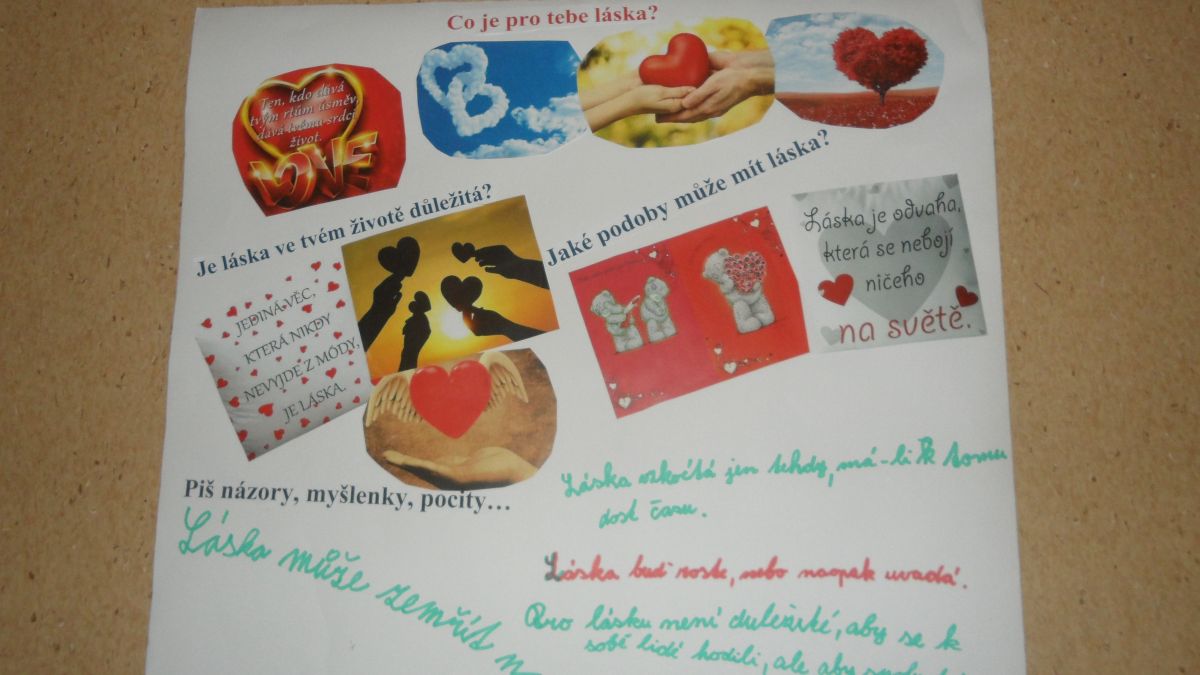 Co je pro tebe láska?
Ten, kdo dává
tvým rtům úsměv,
dává tvému srdci
život.
LOVE
Je láska ve tvém životě důležitá?
Jaké podoby může mít láska?
JEDINÁ VĚC,
KTERÁ NIKDY
NEVYJDE Z MÓDY,
JE LÁSKA.
Láska je odvaha,
která se nebojí
ničeho
na světě.
Piš názory, myšlenky, pocity…
Láska může zemřít
Láska vzkvétá jen tehdy, má-li k tomu
dost času.
Láska buď roste, nebo naopak uvadá.
Pro lásku není duležité, aby se k
sobě lidé hodili, ale aby